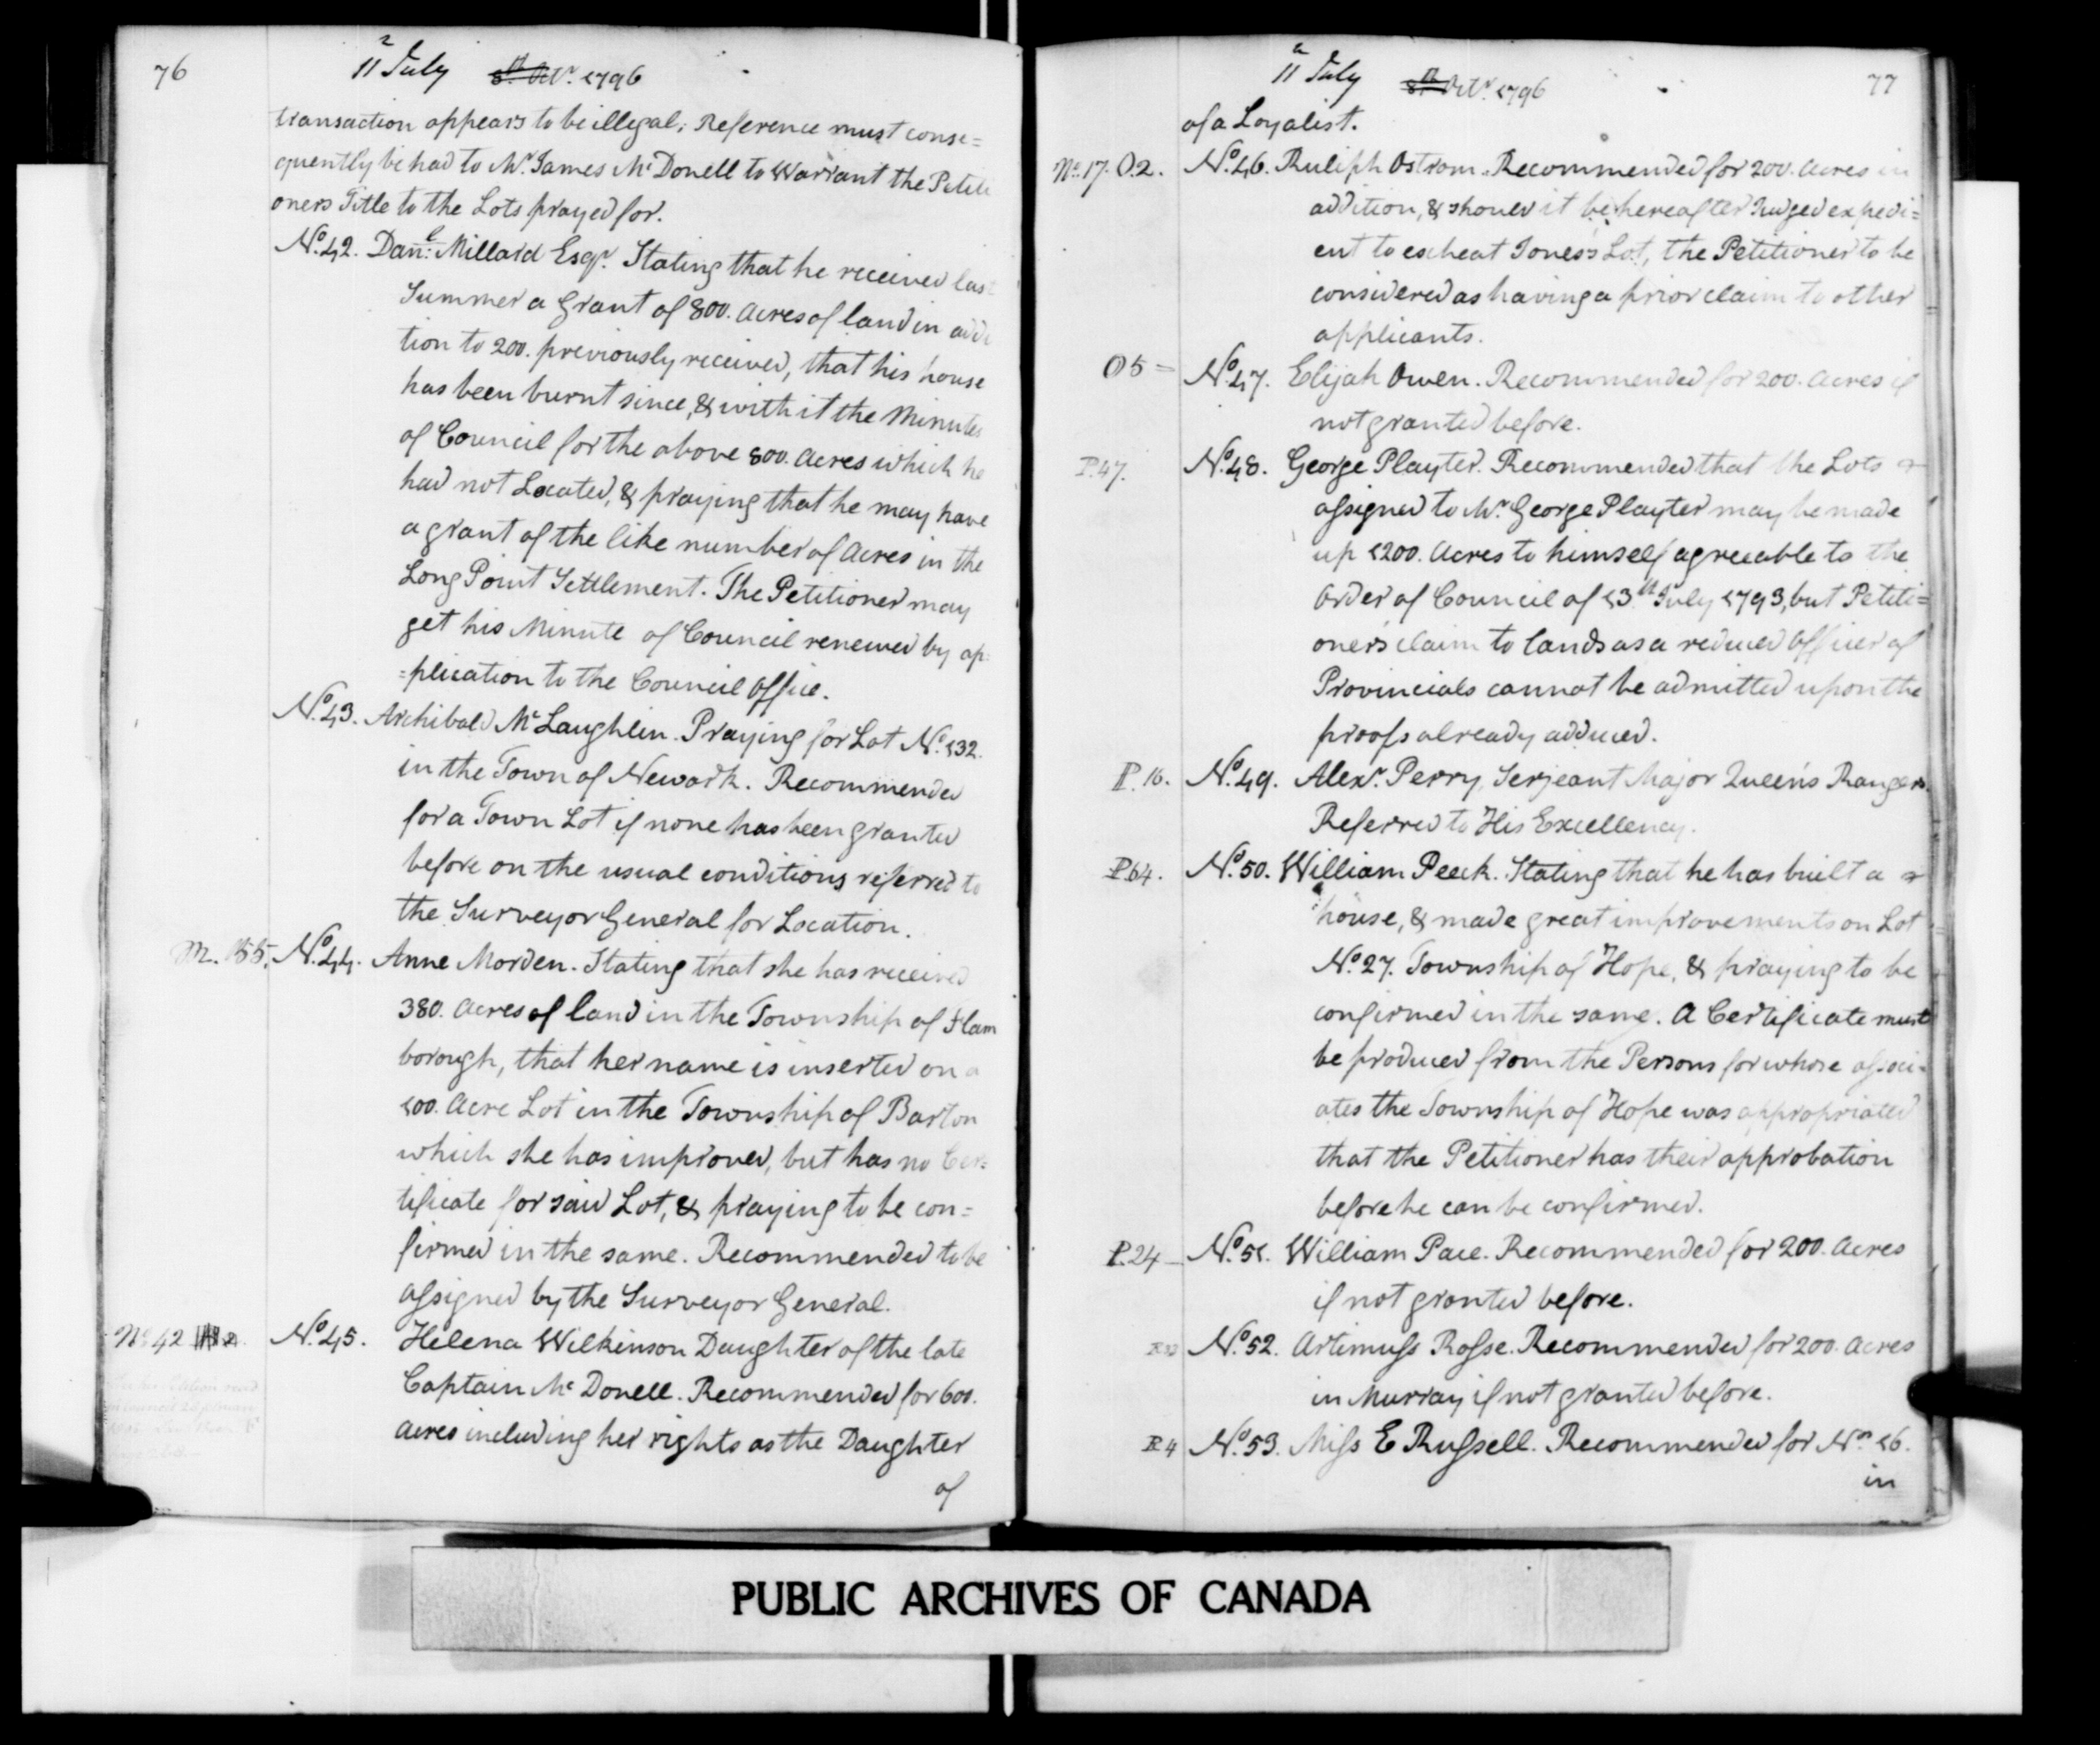 76
11 July 8th Octr. 1796
transaction appears to be illegal; Reference must conse=
quently be had to Mr James McDonell to Warrant the Petiti
oners Title to the Lots prayed for.
No. 42. Danl: Millard Esqr. Stating that he received last
Summer a Grant of 800. Acres of land in addi
tion to 200. previously received, that his house
has been burnt since, & with it the Minutes
of Council for the above 800. Acres which he
had not Located, & praying that he may have
a grant of the like number of Acres in the
Long Point Settlement. The Petitioner may
get his Minute of Council renewed by ap=
=plication to the Council Office.
No. 43. Archibald McLaughlin. Praying for Lot No. 132.
in the Town of Newark. Recommended
for a Town Lot if none has been granted
before on the usual conditions referred to
the Surveyor General for Location.
M. 155. No. 44. Anne Morden. Stating that she has received
380. Acres of land in the Township of Flam
borough, that her name is inserted on a
100. Acre Lot in the Township of Barton
which she has improved, but has no Cer=
tificate for said Lot, & praying to be con=
firmed in the same. Recommended to be
assigned by the Surveyor General.
No. 42 No. 45. Helena Wilkinson Daughter of the late
Captain McDonell. Recommended for 600.
Acres including her rights as the Daughter
of
11 July 8th Octr. 1796
77
of a Loyalist.
No. 17. O2. No. 46. Ruliph Ostrom. Recommended for 200. Acres in
addition, & should it be hereafter Judged expedi=
ent to escheat Jones's Lot, the Petitioner to be
considered as having a prior claim to other
applicants.
O5 = No. 47. Elijah Owen. Recommended for 200. Acres if
not granted before.
P. 47. No. 48. George Playter. Recommended that the Lots
assigned to Mr George Playter may be made
up 1200. Acres to himself agreeable to the
Order of Council of 13th July 1793, but Petiti=
oner's claim to lands as a reduced Officer of
Provincials cannot be admitted upon the
proofs already adduced.
P. 16. No. 49. Alexr. Perry, Serjeant Major Queen's Rangers.
Referred to His Excellency.
P64. No. 50. William Peeck. Stating that he has built a
house, & made great improvements on Lot
No. 27. Township of Hope, & praying to be
confirmed in the same. A Certificate must
be produced from the Persons for whose associ=
ates the Township of Hope was appropriated
that the Petitioner has their approbation
before he can be confirmed.
P. 24 No. 51. William Pace. Recommended for 200. Acres
if not granted before.
No. 52. Artimuss Rosse. Recommended for 200. Acres
in Murray if not granted before.
R4 No. 53. Miss E Russell. Recommended for No. 16.
in
PUBLIC ARCHIVES OF CANADA